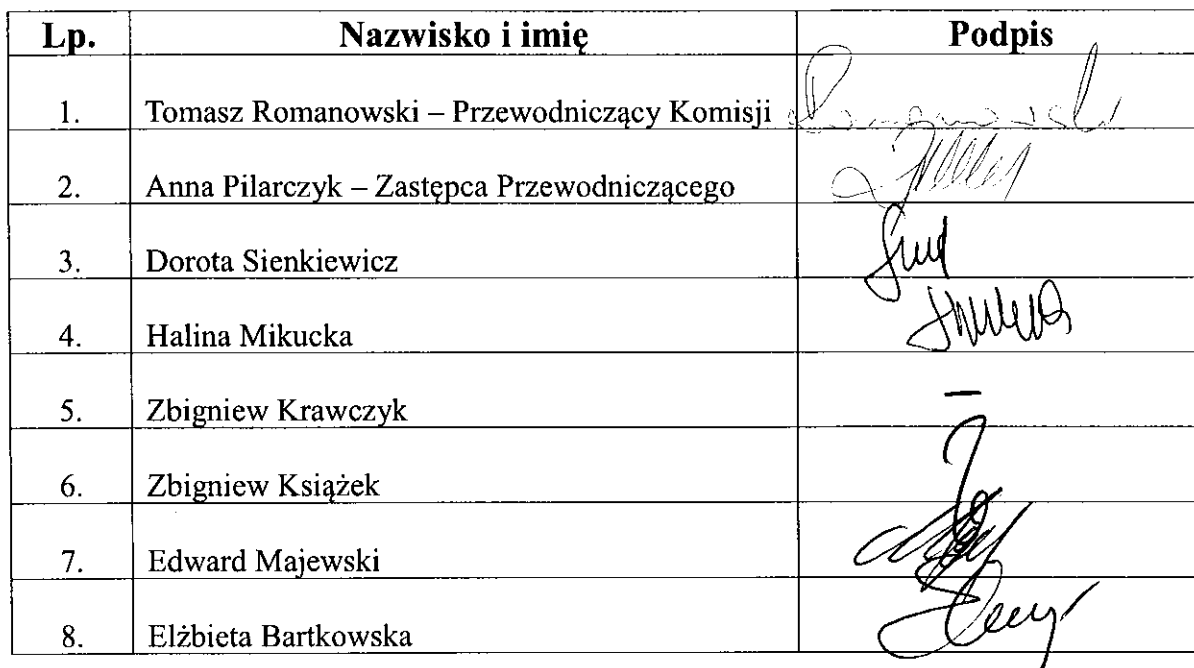 Lp. Nazwisko i imię Podpis
1. Tomasz Romanowski – Przewodniczący Komisji Romanowski
2. Anna Pilarczyk – Zastępca Przewodniczącego
3. Dorota Sienkiewicz
4. Halina Mikucka
5. Zbigniew Krawczyk –
6. Zbigniew Książek
7. Edward Majewski
8. Elżbieta Bartkowska